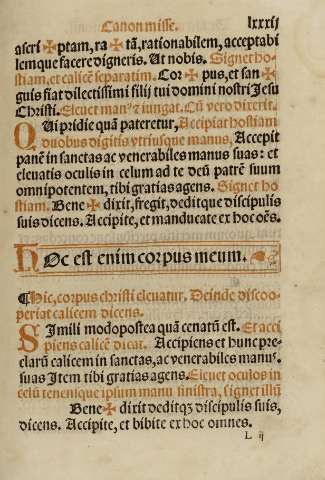 Canon misse. lxxxij
ascri ✠ ptam, ra ✠ tā, rationabilem, acceptabi
lemque facere digneris. Ut nobis. Signet ho
stiam, et calicē separatim. Cor ✠ pus, et san ✠
guis fiat dilectissimi filij tui domini nostri Jesu
Christi. Eleuet man⁹ ⁊ iungat. Cū vero dixerit.
Qui pridie quā pateretur, Accipiat hostiam
duobus digitis vtriusque manus, Accepit
panē in sanctas ac venerabiles manus suas: et
eleuatis oculis in celum ad te deū patrē suum
omnipotentem, tibi gratias agens. Signet ho
stiam. Bene ✠ dixit, fregit, deditque discipulis
suis dicens. Accipite, et manducate ex hoc oēs.
Hoc est enim corpus meum.
¶ Hic, corpus christi eleuatur. Deinde discoo-
periat calicem dicens.
Simili modo posteaquā cenatū est. Et acci
piens calicē dicat. Accipiens et hunc pre-
clarū calicem in sanctas, ac venerabiles manus.
suas Item tibi gratias agens. Eleuet oculos in
celū tenenique ipsum manu sinistra, signet illū
Bene ✠ dixit deditqȝ discipulis suis,
dicens. Accipite, et bibite ex hoc omnes.
L ij